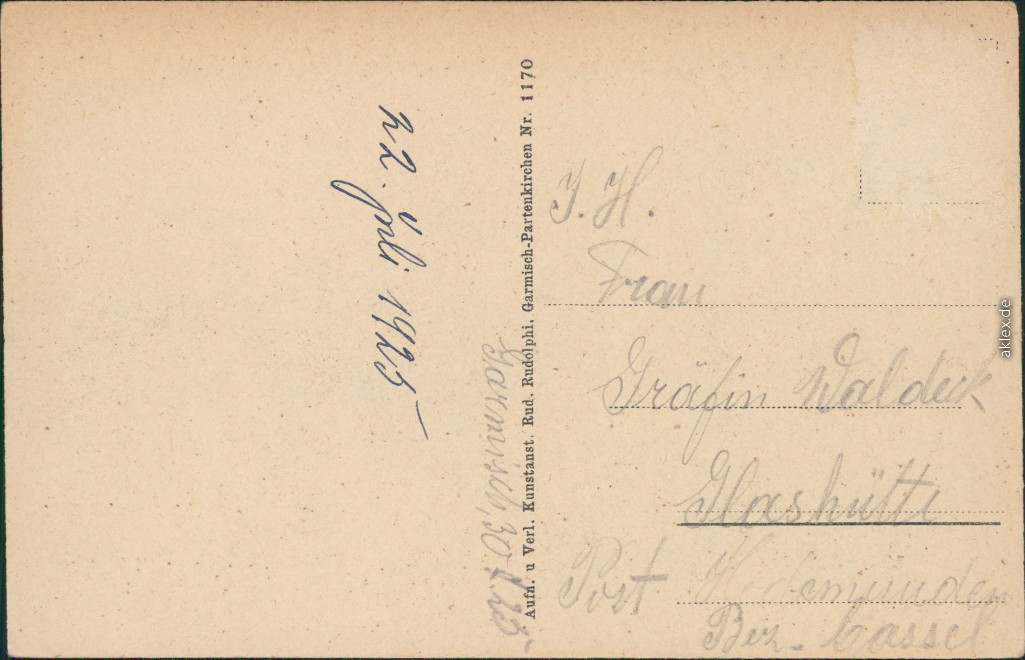 22. Juli 1925
Garmisch, 30.7.25
Aufn. u Verl. Kunstanst. Rud. Rudolphi, Garmisch-Partenkirchen Nr. 1170
I. H.
Frau
Gräfin Waldeck
Glashütte
Post Hedemünden
Bez. Cassel
aklex.de